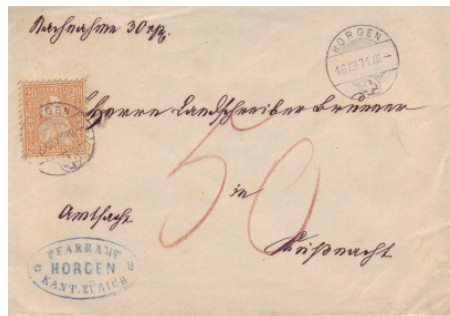 Nachnahme 30 rp.
HORGEN
16 XII 71 III
20 20
Herrn Landschreiber Brunner
50
in
Amtssache
Küßnacht
PFARRAMT
HORGEN
KANT. ZÜRICH